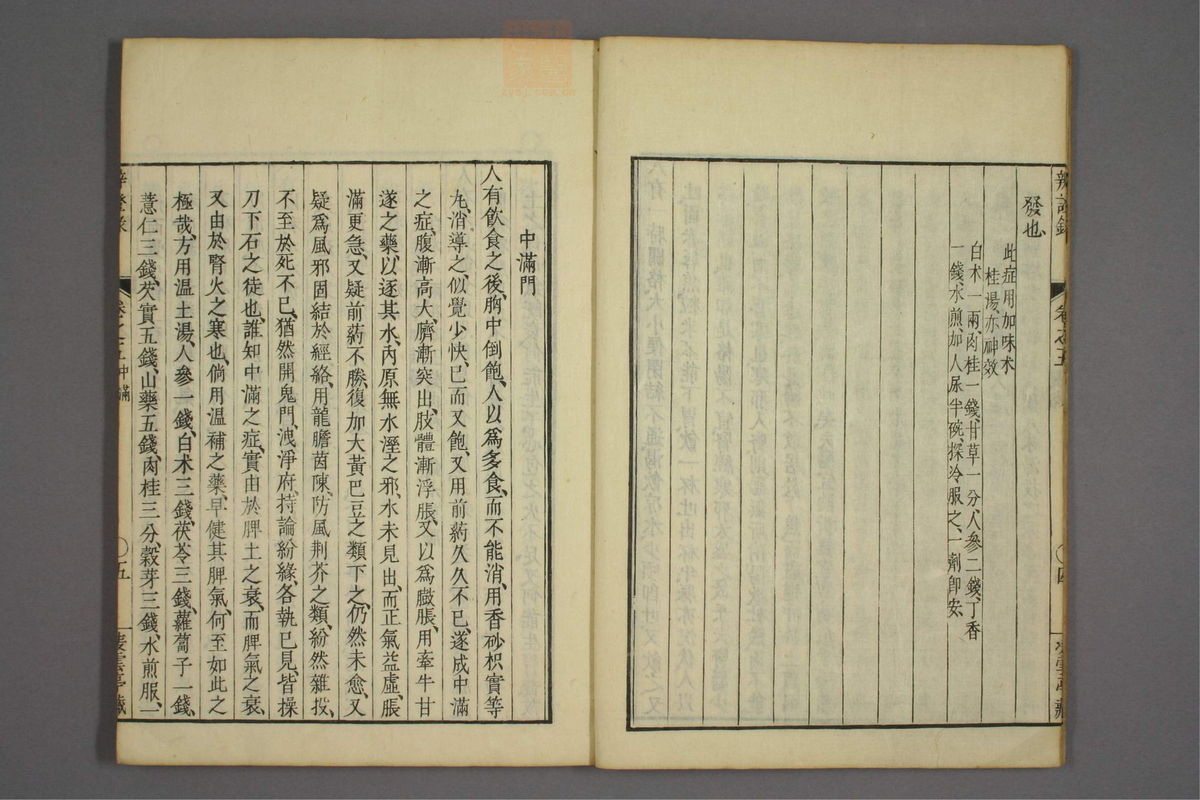 發也
此症用加味术
桂湯亦神效
白术一兩、肉桂一錢、甘草一分、人參二錢、丁香
一錢、水煎、加人尿半碗、探冷服之、一劑卽安、
卷之五
中滿門
人有飲食之後、胸中倒飽、人以爲多食、而不能消、用香砂枳實等
丸、消導之、似覺少快、已而又飽、又用前葯、久久不已、遂成中滿
之症、腹漸高大、臍漸突出、肢體漸浮脹、又以爲臌脹、用牽牛甘
遂之藥、以逐其水、內原無水溼之邪、水未見出、而正氣益虛、脹
滿更急、又疑前葯不勝、復加大黃巴豆之類下之、仍然未愈、又
疑爲風邪固結於經絡、用龍膽茵陳、防風荆芥之類、紛然雜投、
不至於死不已、猶然開鬼門、洩淨府、持論紛緣、各執己見、皆操
刀下石之徒也、誰知中滿之症、實由於脾土之衰、而脾氣之衰、
又由於腎火之寒也、倘用温補之藥、早健其脾氣、何至如此之
極哉、方用温土湯、人參一錢、白术三錢、茯苓三錢、蘿蔔子一錢、
薏仁三錢、芡實五錢、山藥五錢、肉桂三分、穀芽三錢、水煎服、一
卷之五中滿